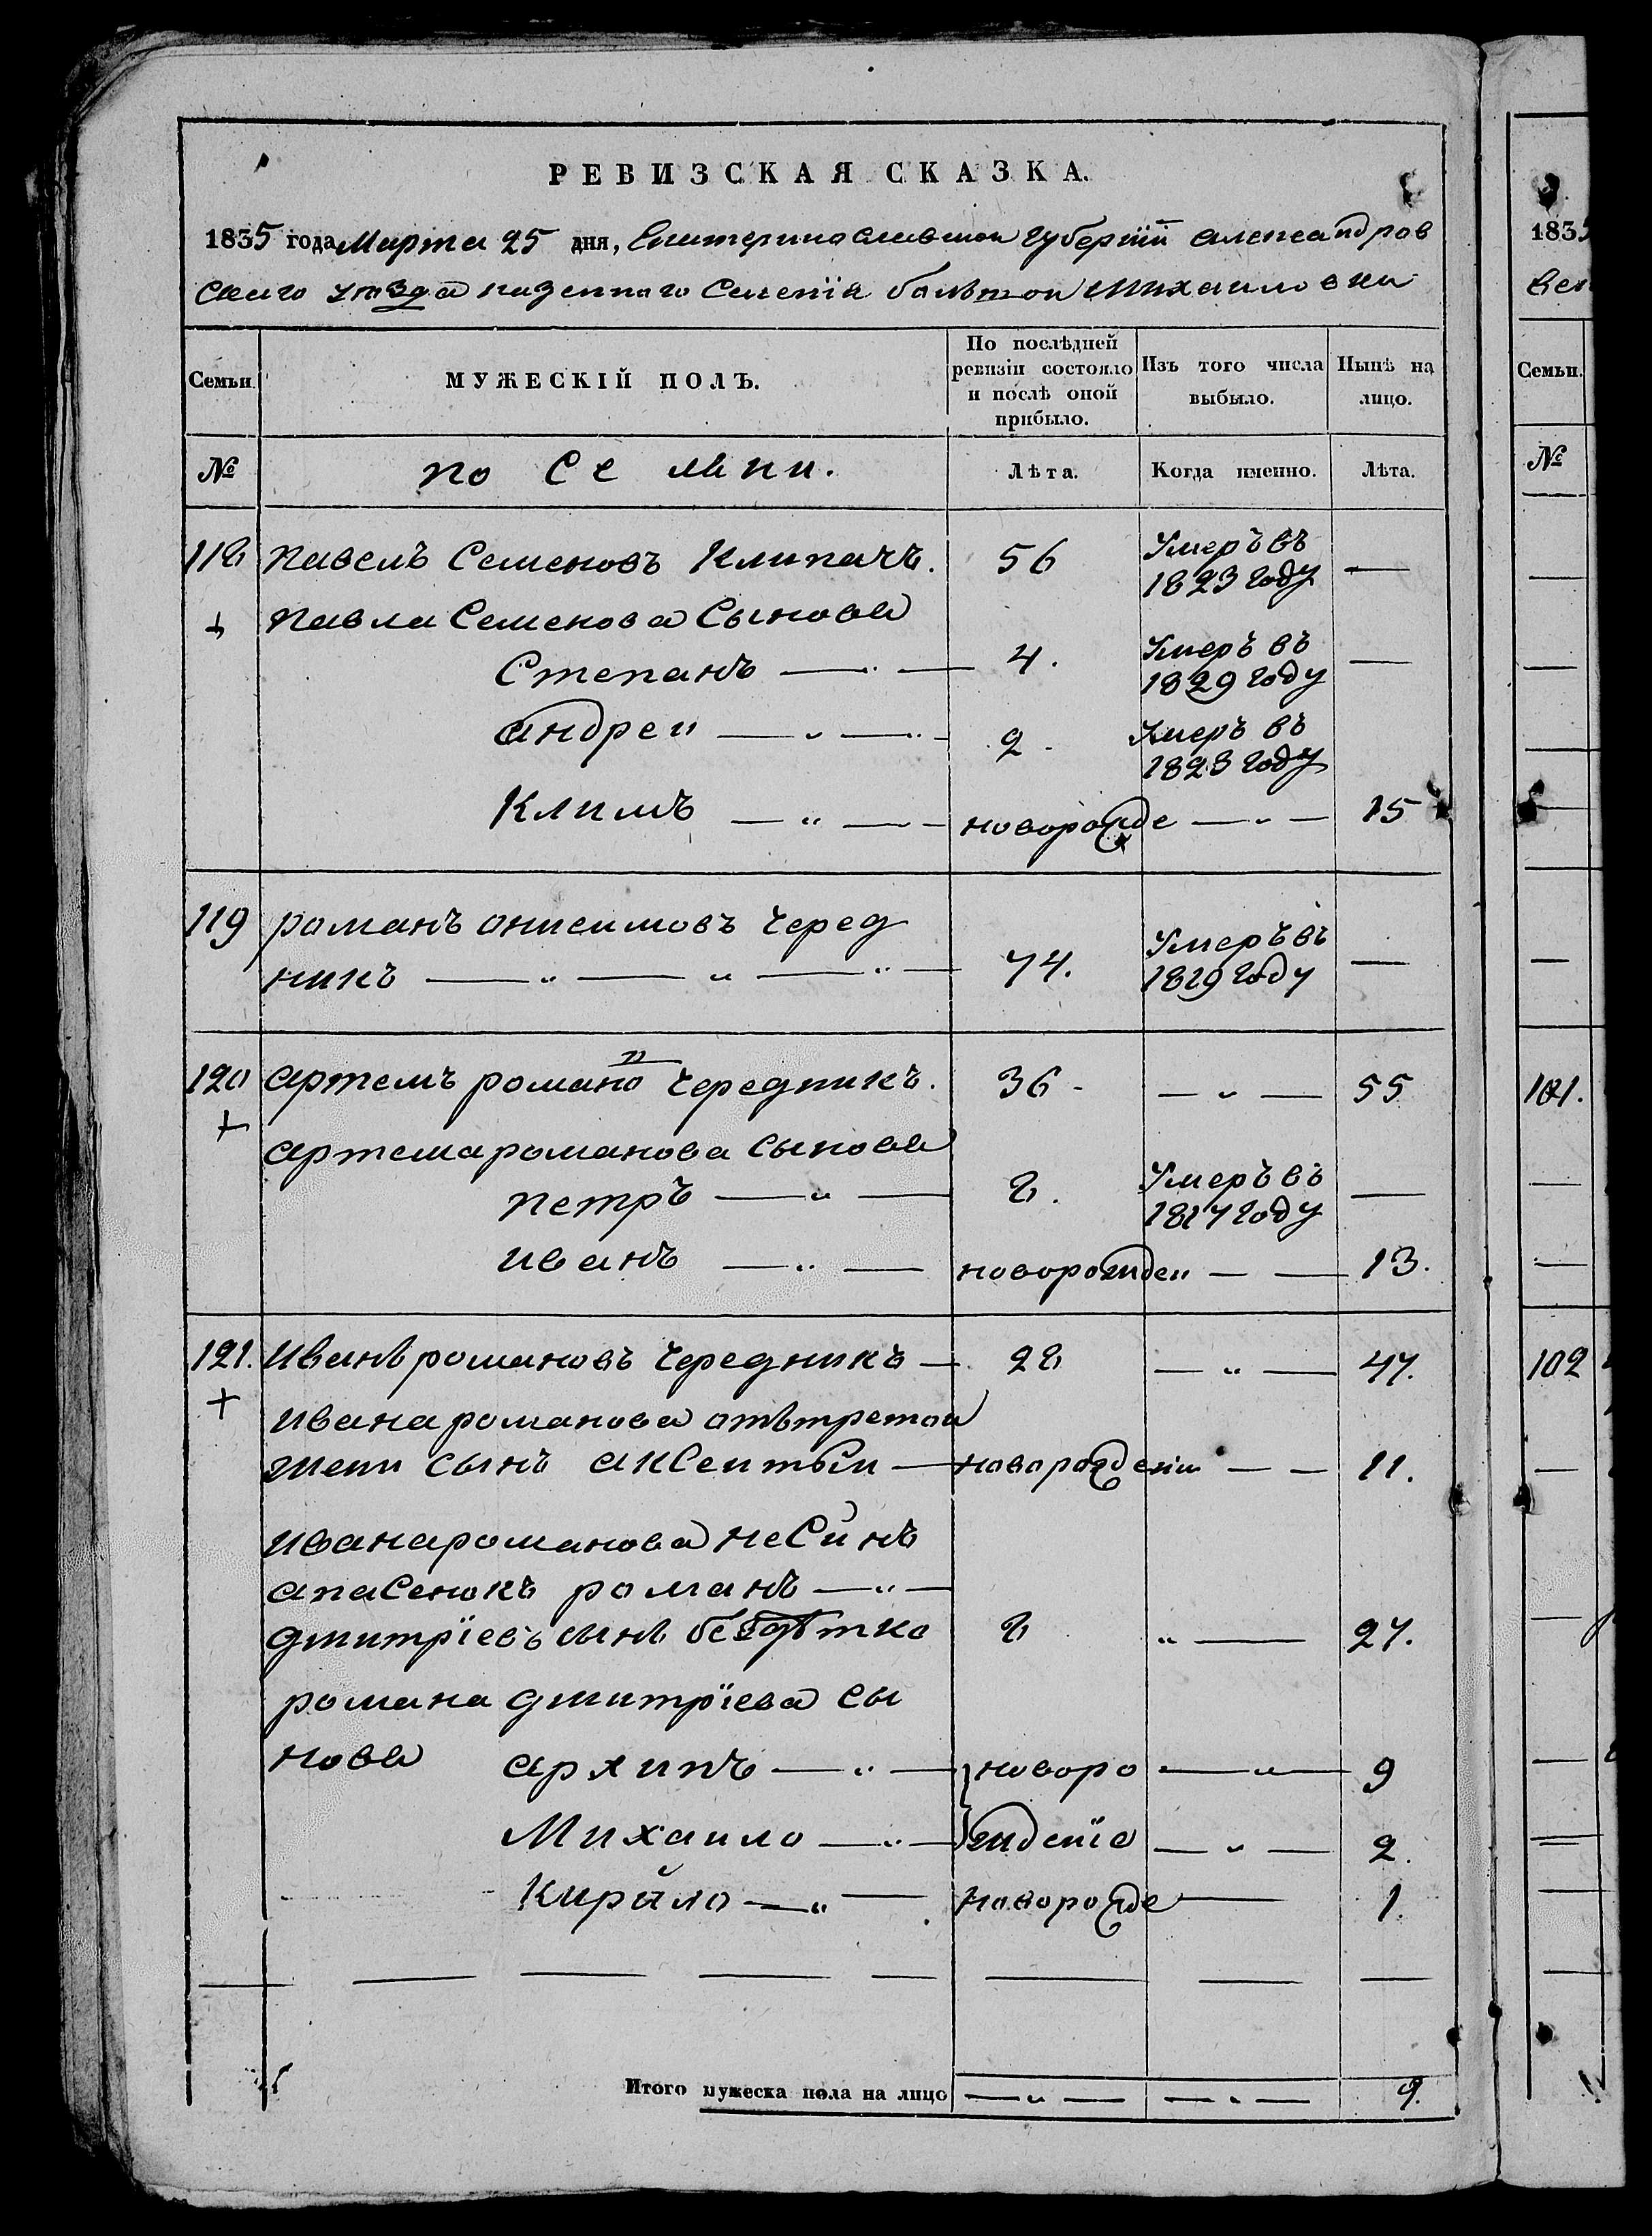 РЕВИЗСКАЯ СКАЗКА.
1835 года Марта 25 дня, Екатеринославской губернїи александров
скаго уезда казенного Селенїя большой Михаиловки
Семьи. МУЖЕСКІЙ ПОЛЪ. По послѣдней ревизіи состояло и послѣ оной прибыло. Изъ того числа выбыло. Нынѣ на лицо.
№ по Се мьи. Лѣта. Когда именно. Лѣта.
118 павелъ Семеновъ Клипачъ. 56 Умеръ въ 1823 году —
павла Семенова Сынове
Степанъ — 4. Умеръ въ 1829 году —
андреи — 2 Умеръ въ 1823 году
Климъ — новорожде — 15
119 романъ онисимовъ Черед
никъ — 74. Умеръ въ 1819 году —
120 артемъ романов Чередникъ. 36 — 55
артема романова Сынове
петръ — 8. Умеръ въ 1817 году —
иванъ — новорожден — 13.
121. иванъ романовъ Чередникъ — 28 — 47.
ивана романова отътретои
жени сынъ аксентыи — новорожденіи — 11.
ивана романова не Синъ
апасенокъ романъ —
дмитрїевъ сынъ бездѣтко 8 — 27.
романа дмитрїева сы
нове архипъ — новоро — 9
Михаило — жденїе — 2.
Кирило — новорожде — 1.
Итого мужеска пола на лицо — — 9.
1835
Семьи.
№
101.
102